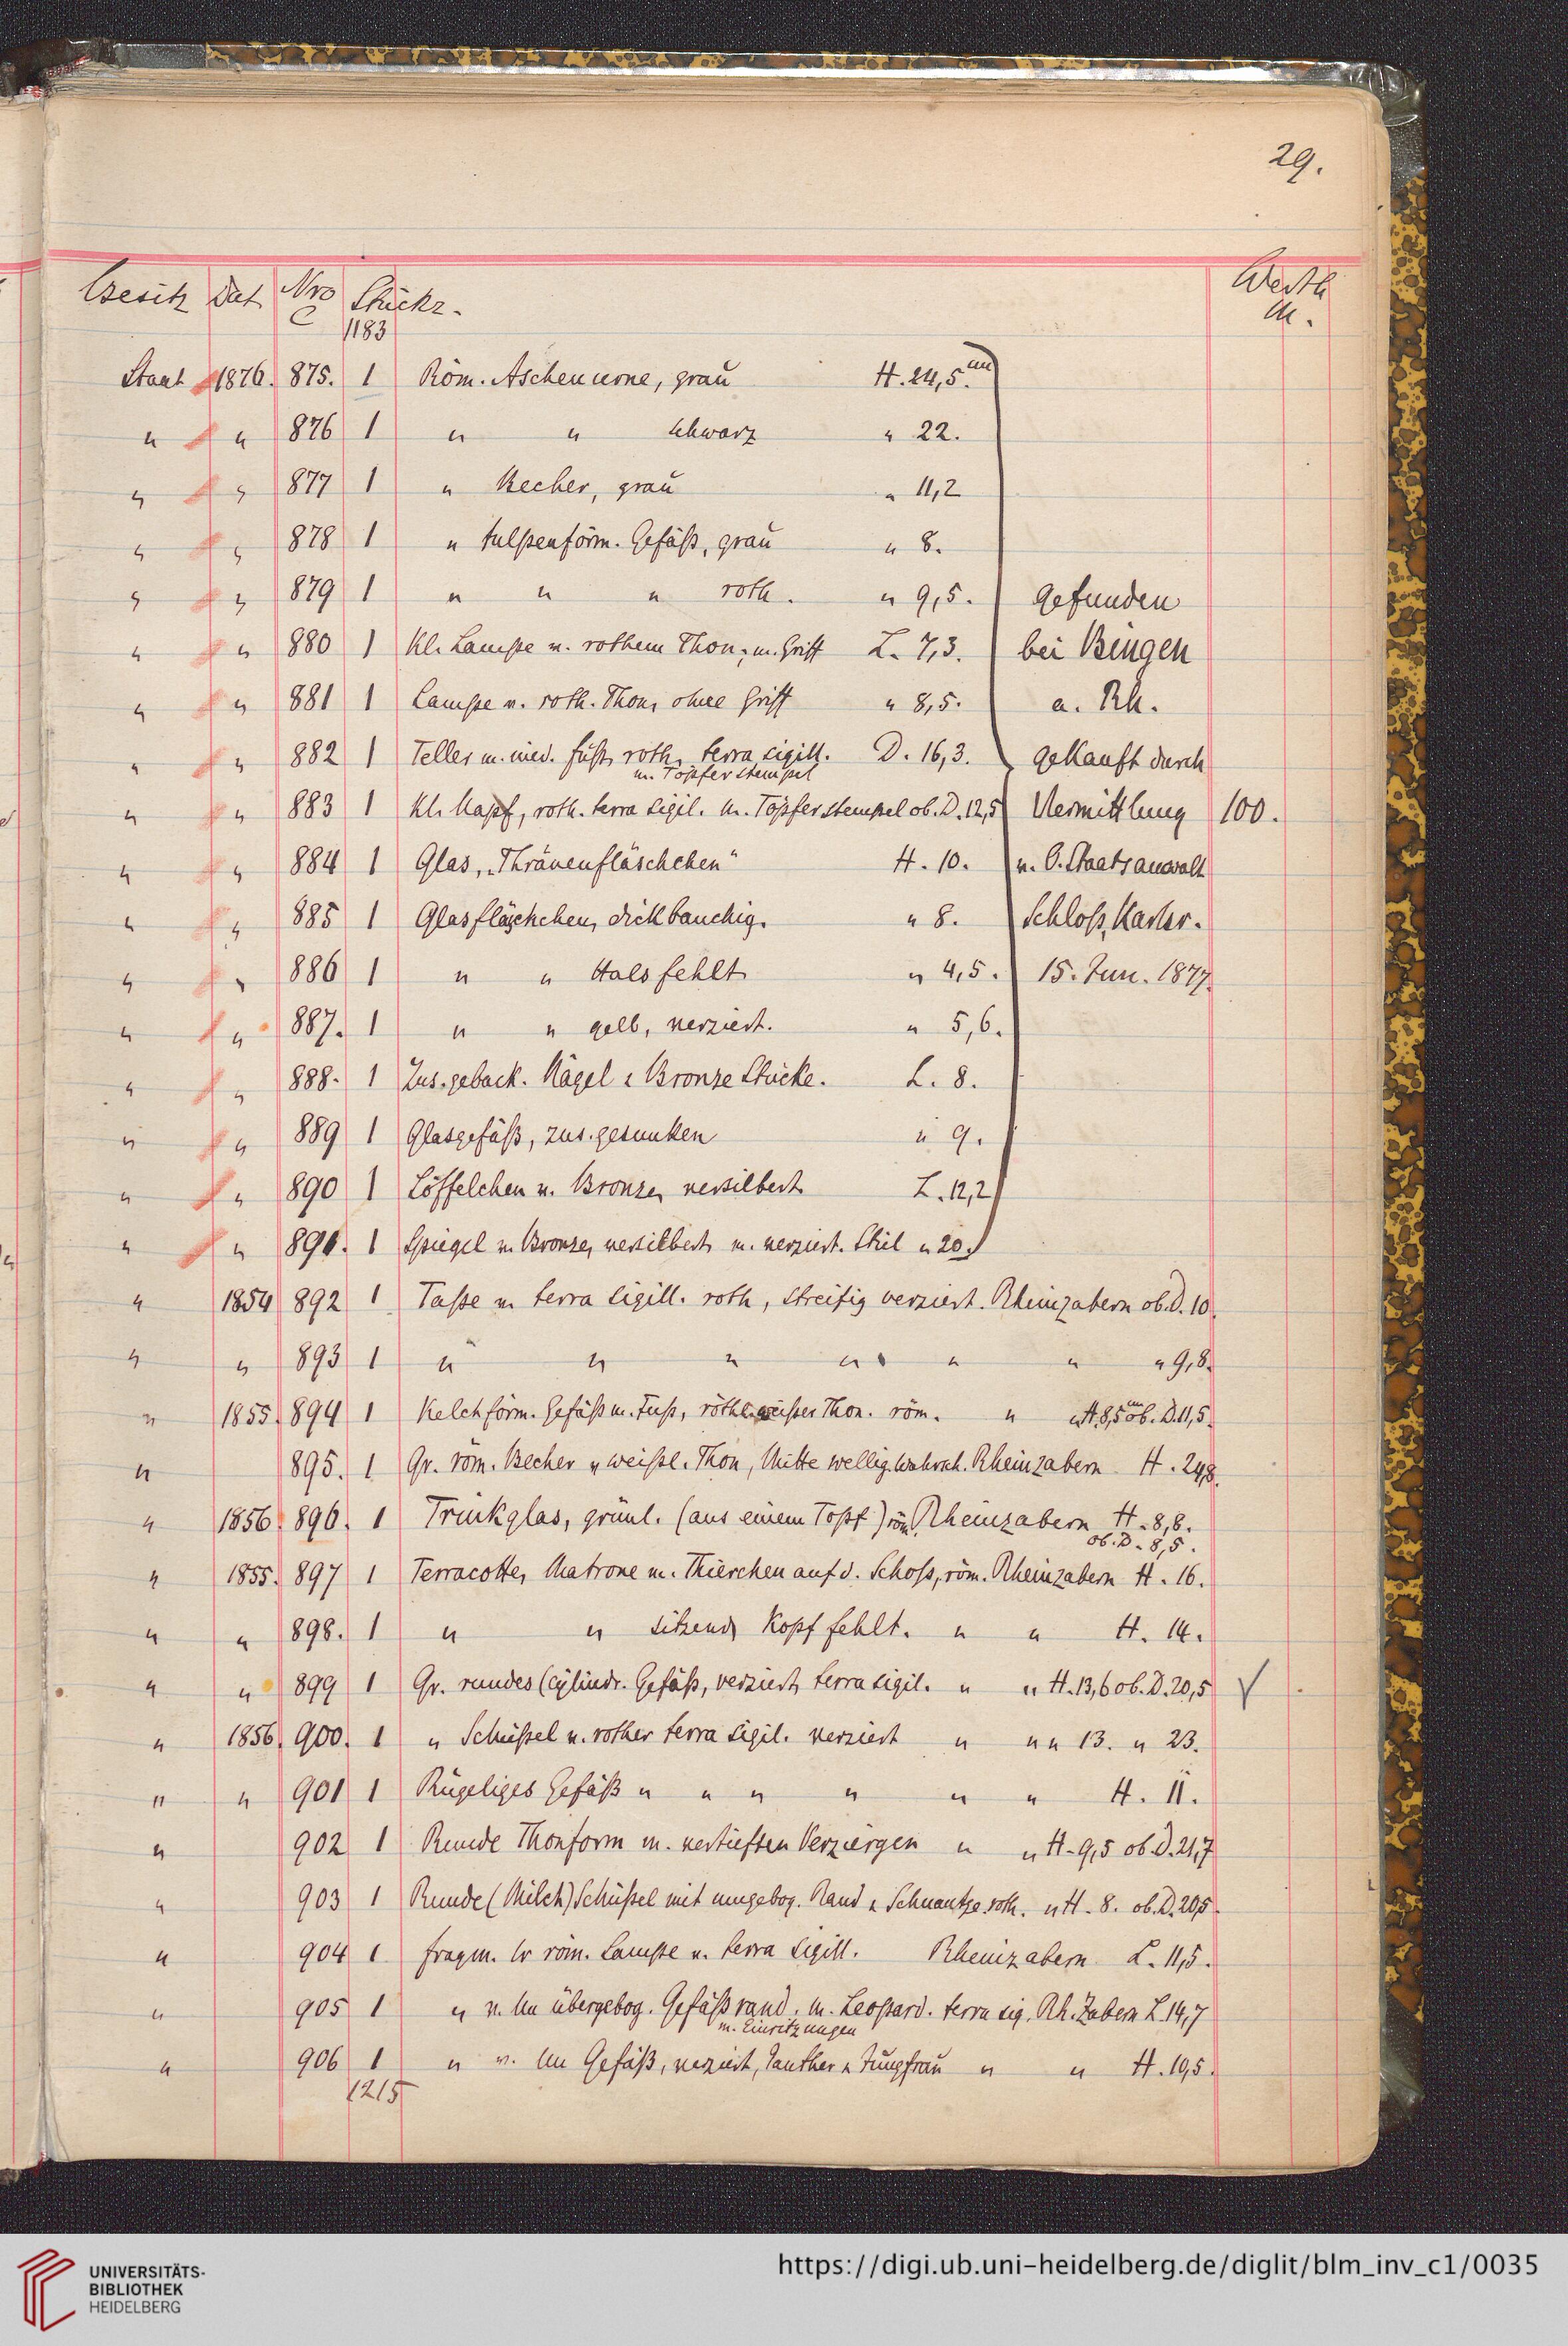 29.
Besitz Dat. Nro C Stückz. Werth M.
1183
Staat 1876. 875. 1 Röm. Aschenurne, grau H. 24,5. cm
" " 876 1 " " schwarz " 22.
" " 877 1 " Becher, grau " 11,2
" " 878 1 " tulpenförm. Gefäß, grau " 8.
" " 879 1 " " " roth. " 9,5. gefunden
" " 880 1 Kl. Lampe v. rothem Thon, m. Griff L. 7,3. bei Bingen
" " 881 1 Lampe v. roth. Thon, ohne Griff " 8,5. a. Rh.
" " 882 1 Teller m. nied. Fuß, roth, terra sigill. D. 16,3. gekauft durch
m. Töpferstempel
" " 883 1 Kl. Napf, roth. terra sigil. m. Töpferstempel ob. D. 12,5 Vermittlung 100.
" " 884 1 Glas, „Thränenfläschchen“ H. 10. v. O. Staatsanwalt
" " 885 1 Glasfläschchen, dickbauchig. " 8. Schloß, Karlsr.
" " 886 1 " " Hals fehlt " 4,5. 15. Jun. 1877.
" " 887. 1 " " gelb, verziert. " 5,6.
" " 888. 1 Zus. geback. Nägel & Bronze Stücke. L. 8.
" " 889 1 Glasgefäß, zus. gesunken " 9.
" " 890 1 Löffelchen v. Bronze, versilbert L. 12,2
" " 891. 1 Spiegel v. Bronze, versilbert, m. verziert. Stiel " 20.
" 1854 892 1 Taße v. terra sigill. roth, streifig verziert. Rheinzabern ob. D. 10.
" " 893 1 " " " " " " " 9,8.
" 1855. 894 1 Kelchförm. Gefäß m. Fuß, röthl. weißer Thon. röm. " " H. 8,5 cm ob. D. 11,5.
" 895. 1 Gr. röm. Becher v. weißl. Thon, Mitte wellig. wahrsch. Rheinzabern H. 24,8.
" 1856 896. 1 Trinkglas, grünl. (aus einem Topf) röm. Rheinzabern H. 8,8.
ob. D. 8,5.
" 1855. 897 1 Terracotte, Matrone m. Thierchen auf d. Schoß, röm. Rheinzabern H. 16.
" " 898. 1 " " sitzend, Kopf fehlt. " " H. 14.
" " 899 1 Gr. rundes (cylindr. Gefäß, verziert, terra sigil. " " H. 13,6 ob. D. 20,5 √
" 1856. 900. 1 " Schüßel v. rother terra sigil. verziert " " " 13. " 23.
" " 901 1 Kugeliges Gefäß " " " " " " H. 11.
" 902 1 Runde Thonform m. vertieften Verziergen " " H. 9,5 ob. D. 21,7
" 903 1 Runde (Milch) Schüßel mit umgebog. Rand & Schnautze. roth. " H. 8. ob. D. 20,5.
" 904 1 Fragm. er röm. Lampe v. terra sigill. Rheinzabern L. 11,5.
" 905 1 " v. em übergebog. Gefäßrand. m. Leopard. terra sig. Rh. Zabern L. 14,7
m. Einritzungen
" 906 1 " v. em Gefäß, verziert, Panther & Jungfrau " " H. 10,5.
1215
UNIVERSITÄTS-
BIBLIOTHEK
HEIDELBERG
https://digi.ub.uni-heidelberg.de/diglit/blm_inv_c1/0035